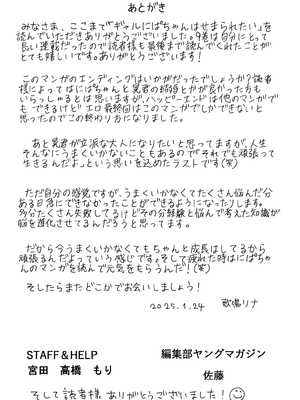 あとがき
みなさま、ここまで『ギャルにぱちゃんはせまられたい』を
読んでいただきありがとうございました。9巻は自分にとって
長い連載だったので読者様も最後まで読んでくれたことが
とても嬉しいです。ありがとうございます！
このマンガのエンディングはいかがだったでしょうか？読者
様によってはにぱちゃんと晃君の結婚とかが良かった方も
いらっしゃるとは思いますが、ハッピーエンドは他のマンガで
もできるけどエロ最終回はこのマンガでしかできないと
思ったのでこの終わり方になりました。
あと晃君が立派な大人になりたいと思ってますが、人生
そんなにうまくいかないこともあるので「それでも頑張って
生きるんだよ」という思いを込めたラストです(笑)
ただ自分の感覚ですが、うまくいかなくてたくさん悩んだ分
ある日急にできなかったことができるようになったりします。
多分たくさん失敗してるけどその分経験と悩んで考えた知識が
脳を進化させてるんだろうと思ってます。
だから今うまくいかなくてもちゃんと成長はしてるから
頑張るんだよっていう感じです。そして疲れた時はにぱちゃ
んのマンガを読んで元気をもらうんだ！(笑)
そしたらまたどこかでお会いしましょう！
2025.1.24 歌鳴リナ
STAFF＆HELP
宮田 高橋 もり
編集部ヤングマガジン
佐藤
そして読者様ありがとうございました！